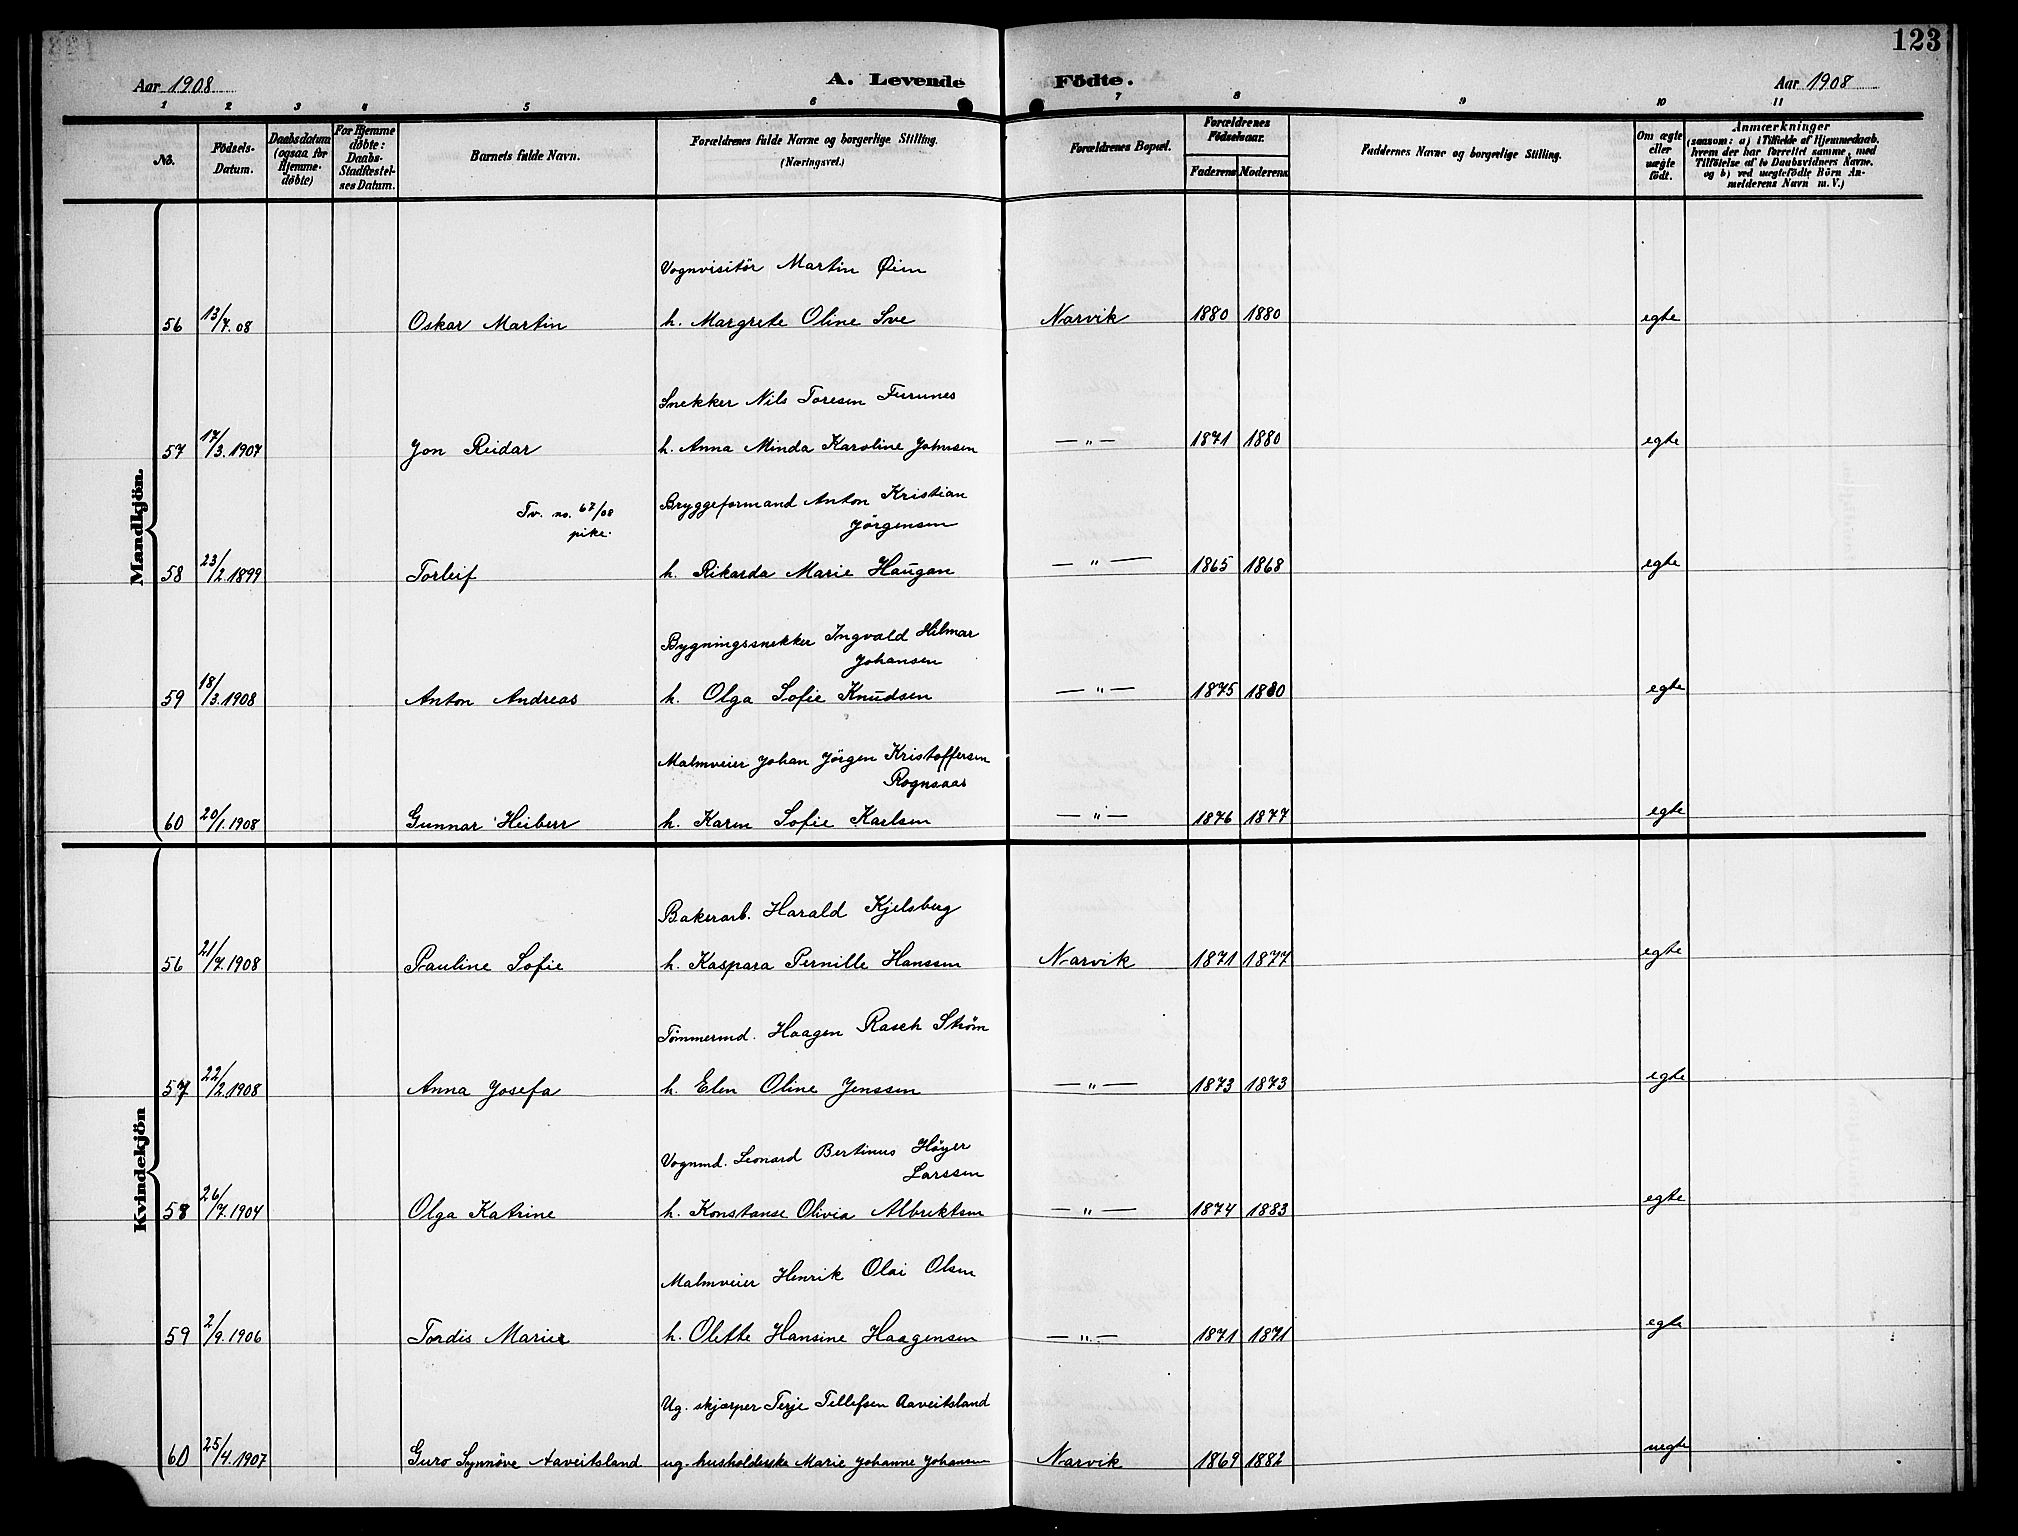 123
Aar 1908 A. Levende Födte. Aar 1908
1 2 3 4 5 6 7 8 9 10 11
No. Födsels-Datum. Daabsdatum (ogsaa for Hjemme-döbte) For Hjemme döbte: Daabs-Stadfæstel-ses Datum. Barnets fulde Navn. Forældrenes fulde Navne og borgerlige Stilling. (Næringsvei.) Forældrenes Bopæl. Forældrenes Födselsaar. Faderens Moderens Faddernes Navne og borgerlige Stilling. Om ægte eller uægte födt. Anmærkninger (saasom: a) i Tilfælde af Hjemmedaab, hvem der har forrettet samme, med Tilföielse af to Daabsvidners Navne. og b) ved uægtefödte Börn An-melderens Navn m. V.)
Mandkjön.
Vognvisitør Martin Øien
56 13/7.08 Oskar Martin h. Margrete Oline Sve Narvik 1880 1880 egte
Snekker Nils Toresen Furunes
57 17/3.1907 Jon Reidar h. Anna Minda Karoline Johnsen — " — 1871 1880 egte
Tv. no. 67/08 pike. Bryggeformand Anton Kristian
Jörgensen
58 23/2.1899 Torleif h. Rikarda Marie Haugan — " — 1865 1868 egte
Bygningssnekker Ingvald Hilmar
Johansen
59 18/3.1908 Anton Andreas h. Olga Sofie Knudsen — " — 1875 1880 egte
Malmveier Johan Jörgen Kristoffersen
Rognsaas
60 20/1.1908 Gunnar Heiberr h. Karen Sofie Karlsen — " — 1876 1877 egte
Kvindekjön
Bakerarb. Harald Kjelsberg
56 21/7.1908 Pauline Sofie h. Kaspara Pernille Hanssen Narvik 1871 1877 egte
Tømmermd. Haagen Rasch Strøm
57 22/2.1908 Anna Josefa h. Elen Oline Jenssen — " — 1873 1873 egte
Vognmd. Leonard Bertinus Höyer
Larssen
58 26/7.1904 Olga Katrine h. Konstanse Olivia Albrektsen — " — 1874 1883 egte
Malmveier Henrik Olai Olsen
59 2/9.1906 Tordis Marie h. Olette Hansine Haagensen — " — 1871 1871 egte
Ug. skjærper Terje Tellefsen Aaveitsland
60 25/4.1907 Guro Synnöve Aaveitsland ug. husholderske Marie Johanne Johansen Narvik 1869 1882 uegte